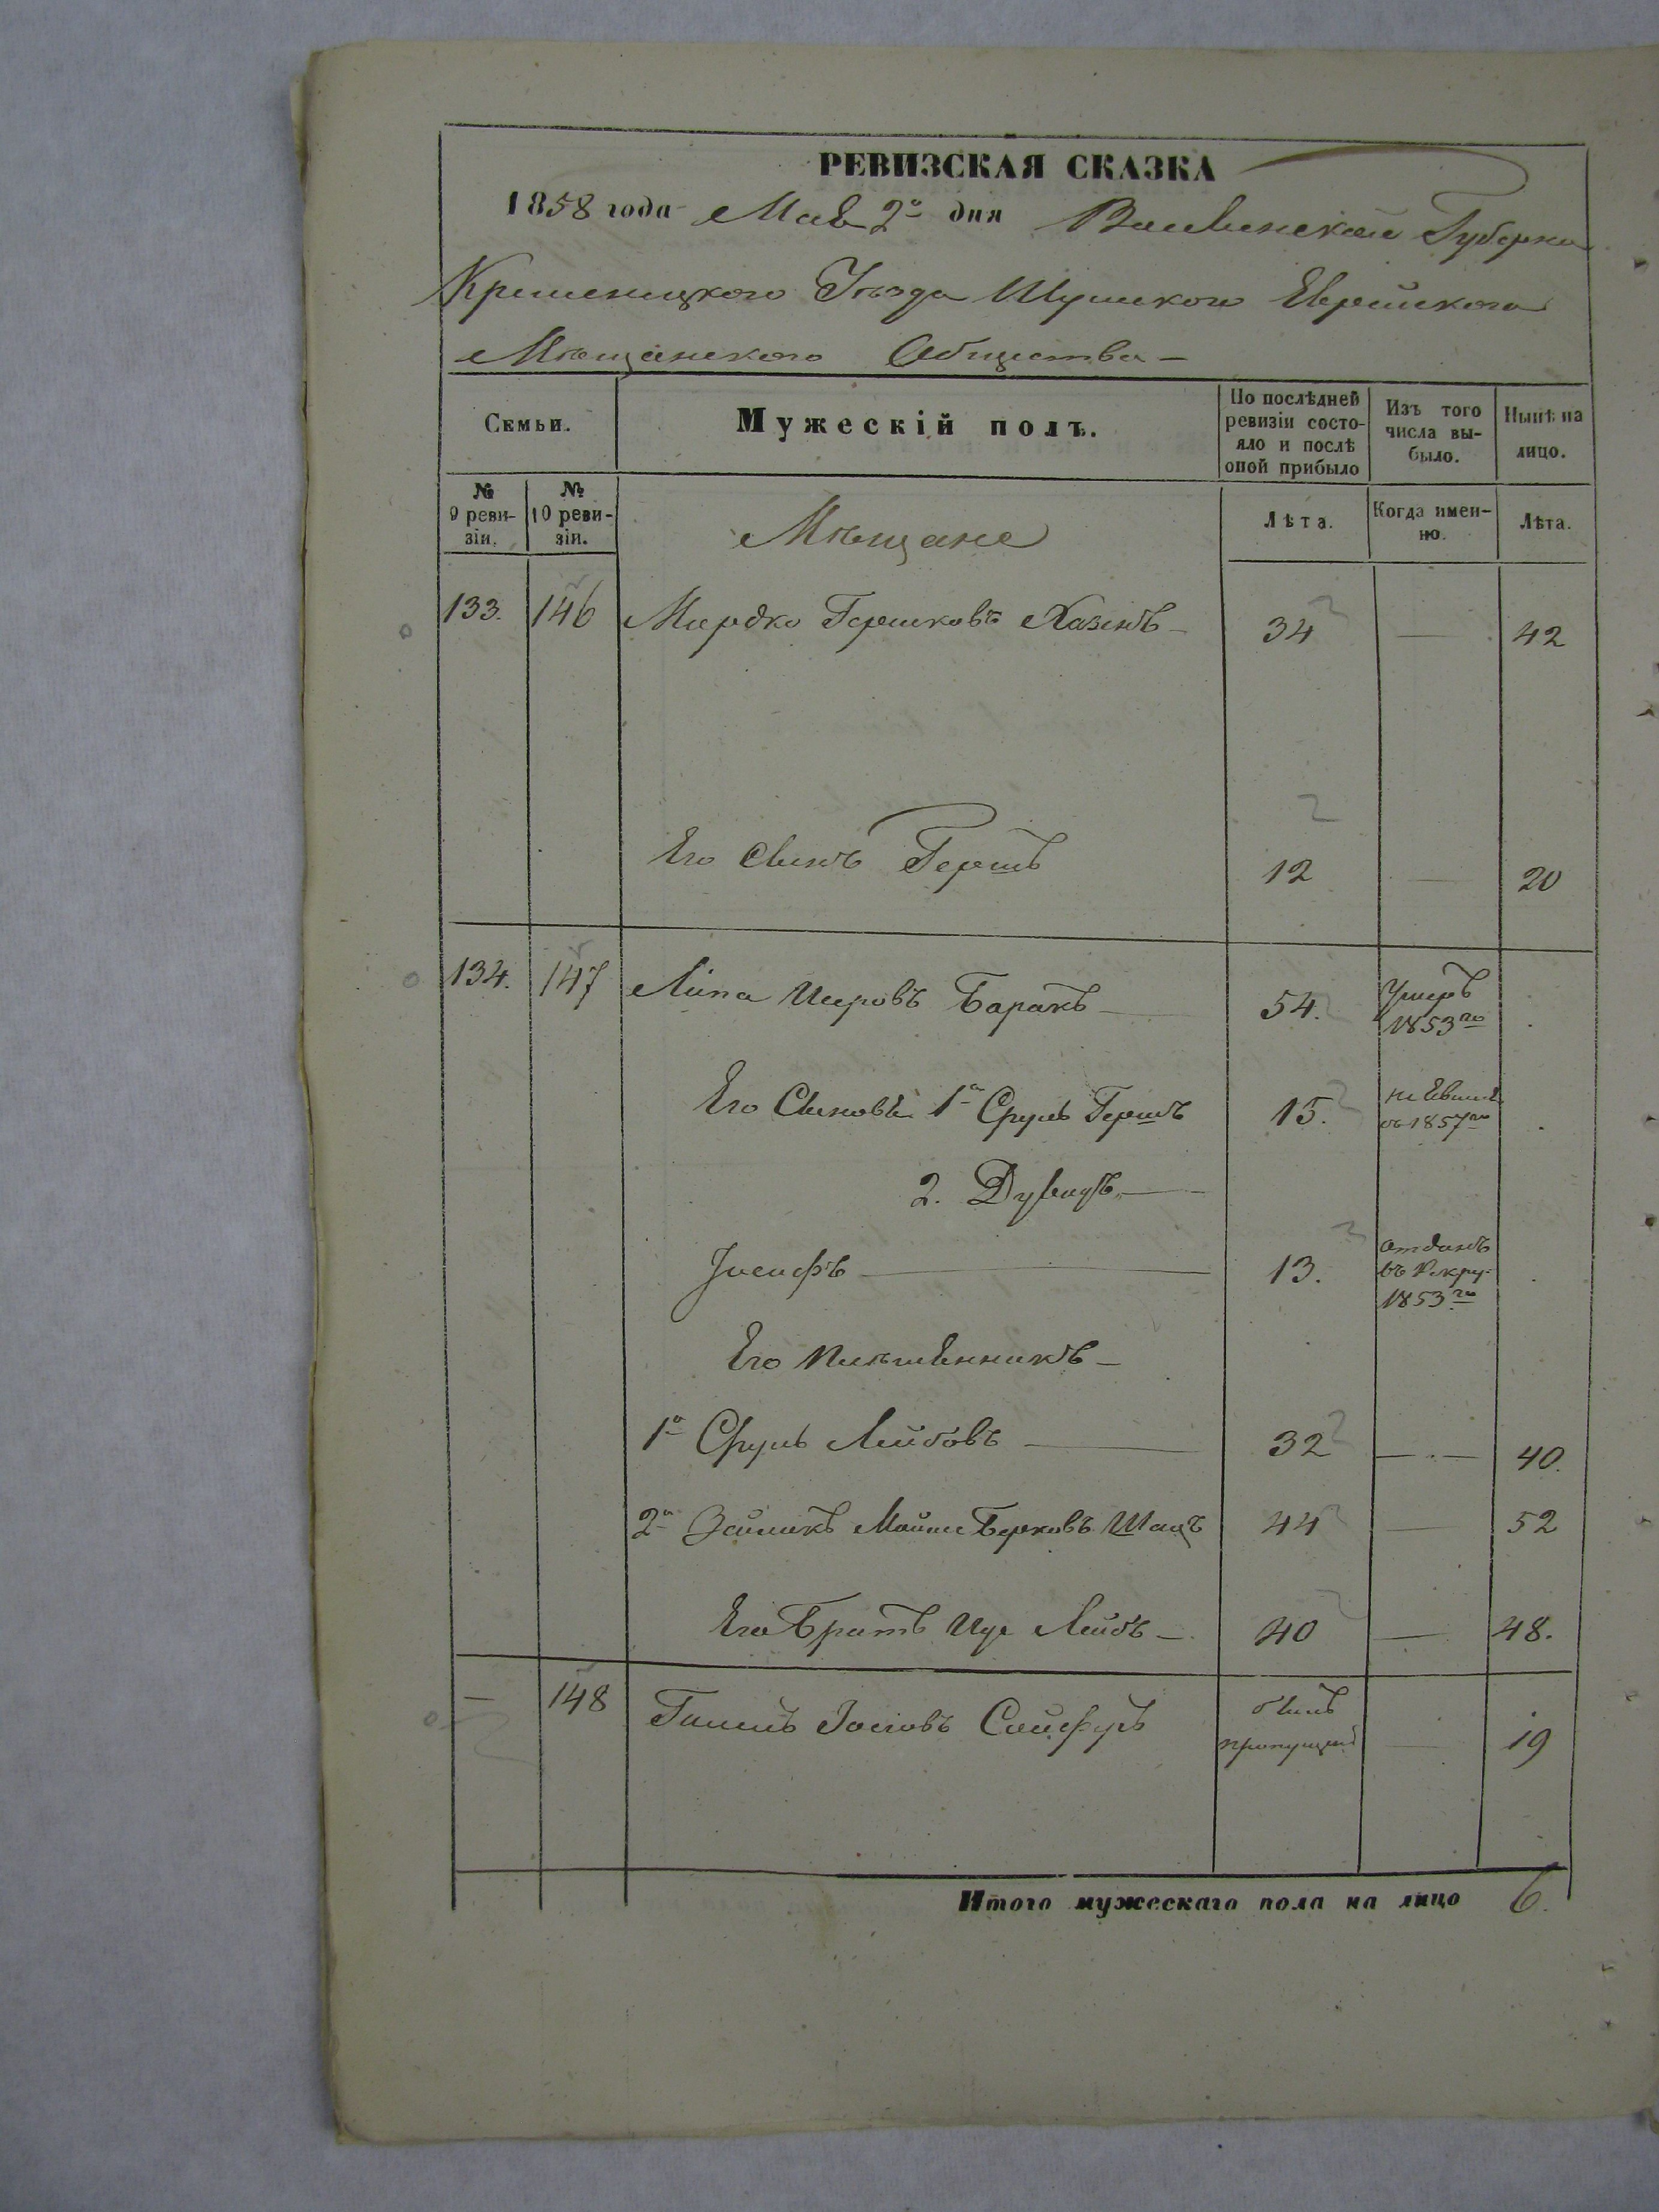 РЕВИЗСКАЯ СКАЗКА
1858 года Мая 2го дня Волынской Губерни
Кременецкого Уѣзда Шумского Еврейского
Мѣщанского Общества –
Семьи.
Мужескій полъ.
По послѣдней ревизіи состо-
яло и послѣ
оной прибыло
Изъ того
числа вы-
было.
Нынѣ на
лицо.
№
9 реви-
зіи.
№
10 реви-
зіи.
Мѣщане
Лѣта.
Когда имен-
но.
Лѣта.
133. 146 Мордко Гершковъ Хазинъ – 34 — 42
Его Сынъ Гершъ 12 — 20
134. 147 Липа Шеровъ Баракъ — 54. Умеръ
1853го
Его Сыновья 1й Сруль Гершъ 15.
съ 1857го
2. —
Іосифъ — 13. отданъ
въ Рекру.
1853го
Его племѣнникъ –
1й Сруль Лейбовъ — 32 — 40.
2й Мойше Берковъ Шацъ 44 — 52
Его Братъ Лейбъ – 40 — 48.
— 148 Іосіовъ былъ
— 19
Итого мужескаго пола на лицо 6.